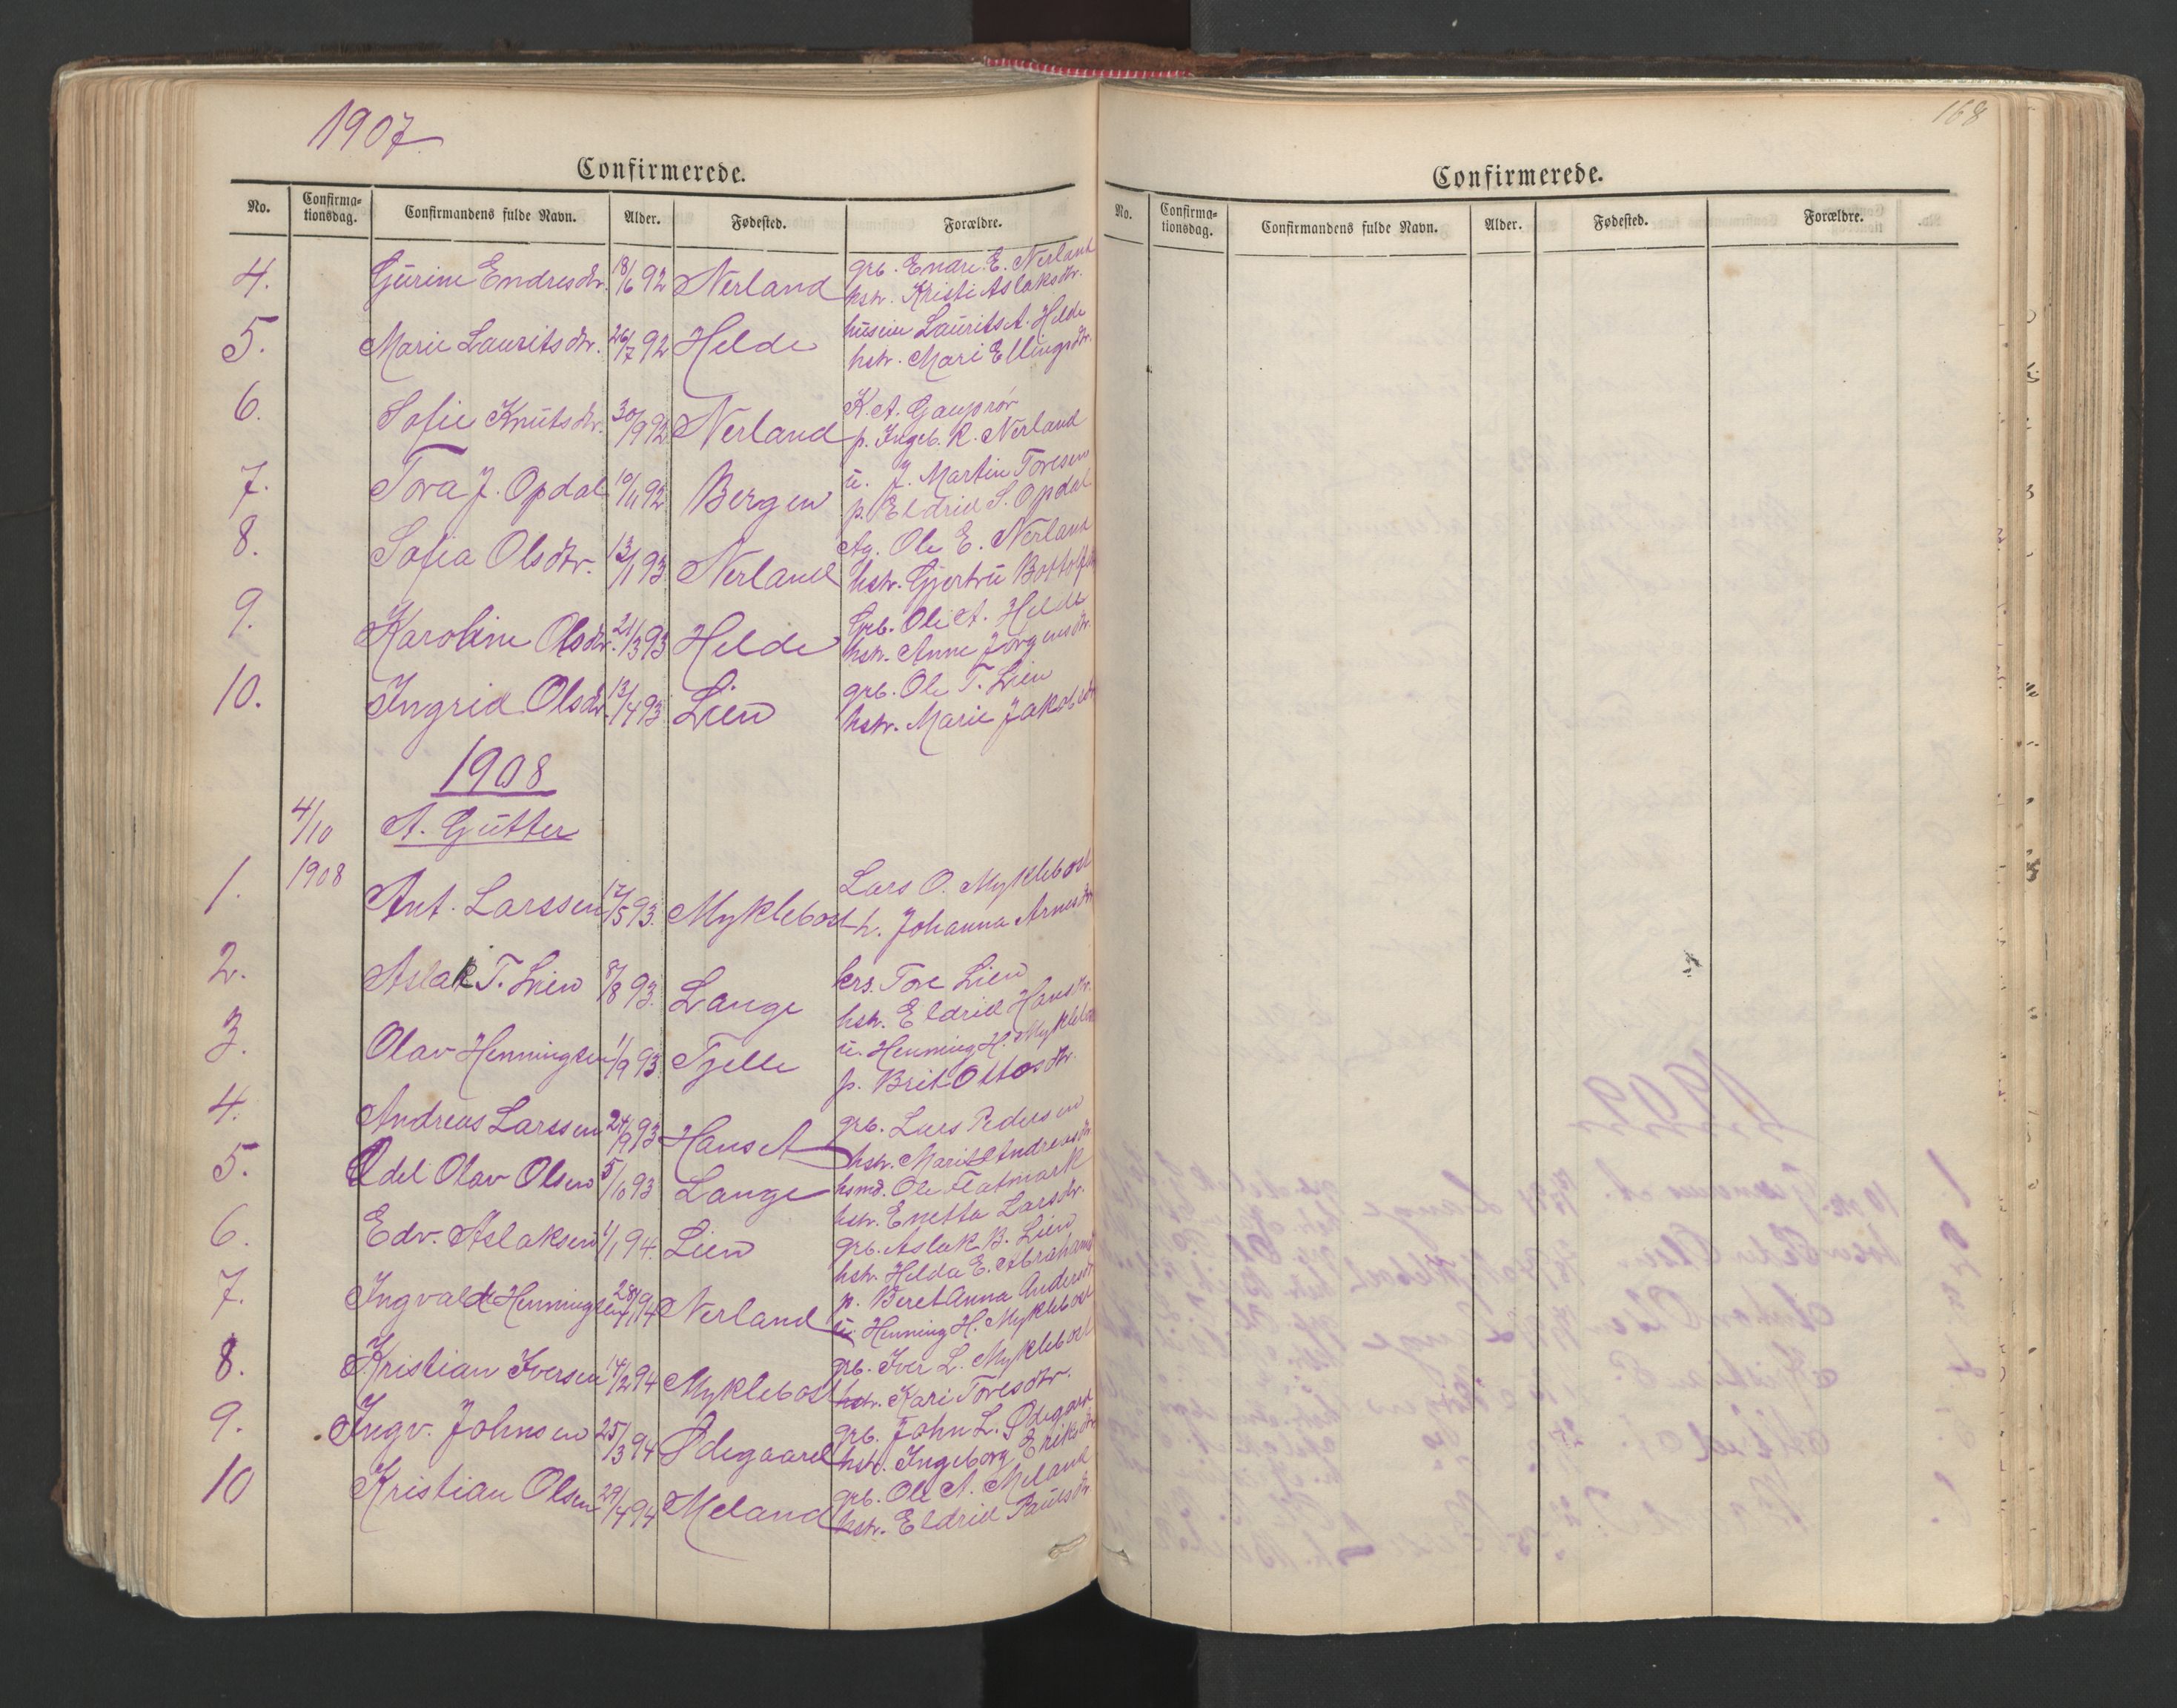 1907
Confirmerede.
No. Confirma-tionsdag. Confirmandens fulde Navn. Alder. Fødested. Forældre.
4. Gurine Endresdtr. 18/6 92 Nerland grb. Endre E. Nerland
hstr. Kristi Aslaksdtr.
5. Marie Lauritsdtr. 26/7 92 Helde husein Laurits A. Helde
hstr. Mari Ellingsdtr.
6. Sofie Knutsdtr. 30/9 92 Nerland K. A. Gauprør
p. Ingeb. K. Nerland
7. Tora J. Opdal 10/11 92 Bergen u. J. Martin Toresen
p. Eldrid S. Opdal
8. Sofia Olsdtr. 13/1 93 Nerland Ag. Ole E. Nerland
hstr. Gjertru
9. Karoline Olsdtr. 21/3 93 Helde Grb. Ole A. Helde
hstr. Anne Jørgensdtr.
10. Ingrid Olsdtr. 13/4 93 Lien grb. Ole T. Lien
hstr. Marie Jakobsdtr
1908
4/10 A. Gutter
1. 1908 Ant. Larssen 12/5 93. Myklebost Lars O. Myklebost
h. Johanna Arnesdtr
2. Aslak T. Lien 8/8 93. Lange Tore Lien
hstr. Eldrid Hansdtr.
3. Olav Henningsen 1/9 93 Tjelle u. Henning H. Myklebo
p. Brit Ottosdtr.
4. Andreas Larssen 24/9 93 Hanset grb. Lars Pedersen
hstr. Marit Andreasdtr
5. Odel Olav Olsen 5/10 93 Lange hsmd. Ole Flatmark
hstr. Enetta Larsdtr.
6. Edv. Aslaksen 1/1 94. Lien grb. Aslak B. Lien
hstr. Helda E. Abrahams
7. Ingvald Henningsen 28/1 94 Nerland p. Beret Anna Andersdtr
u. Henning H. Myklebost
8. Kristian Iversen 14/2 94 Myklebost grb. Iver L. Myklebost
hstr. Kari Toresdtr.
9. Ingv. Johnsen 25/3 94 Ødegaard grb. John L. Ødegard
hstr. Ingeborg Eriksdtr
10 Kristian Olsen 29/4 94 Meland grb. Ole A. Meland
hstr. Eldrid Paulsdtr
168
Confirmerede.
No. Confirma-tionsdag. Confirmandens fulde Navn. Alder. Fødested. Forældre.